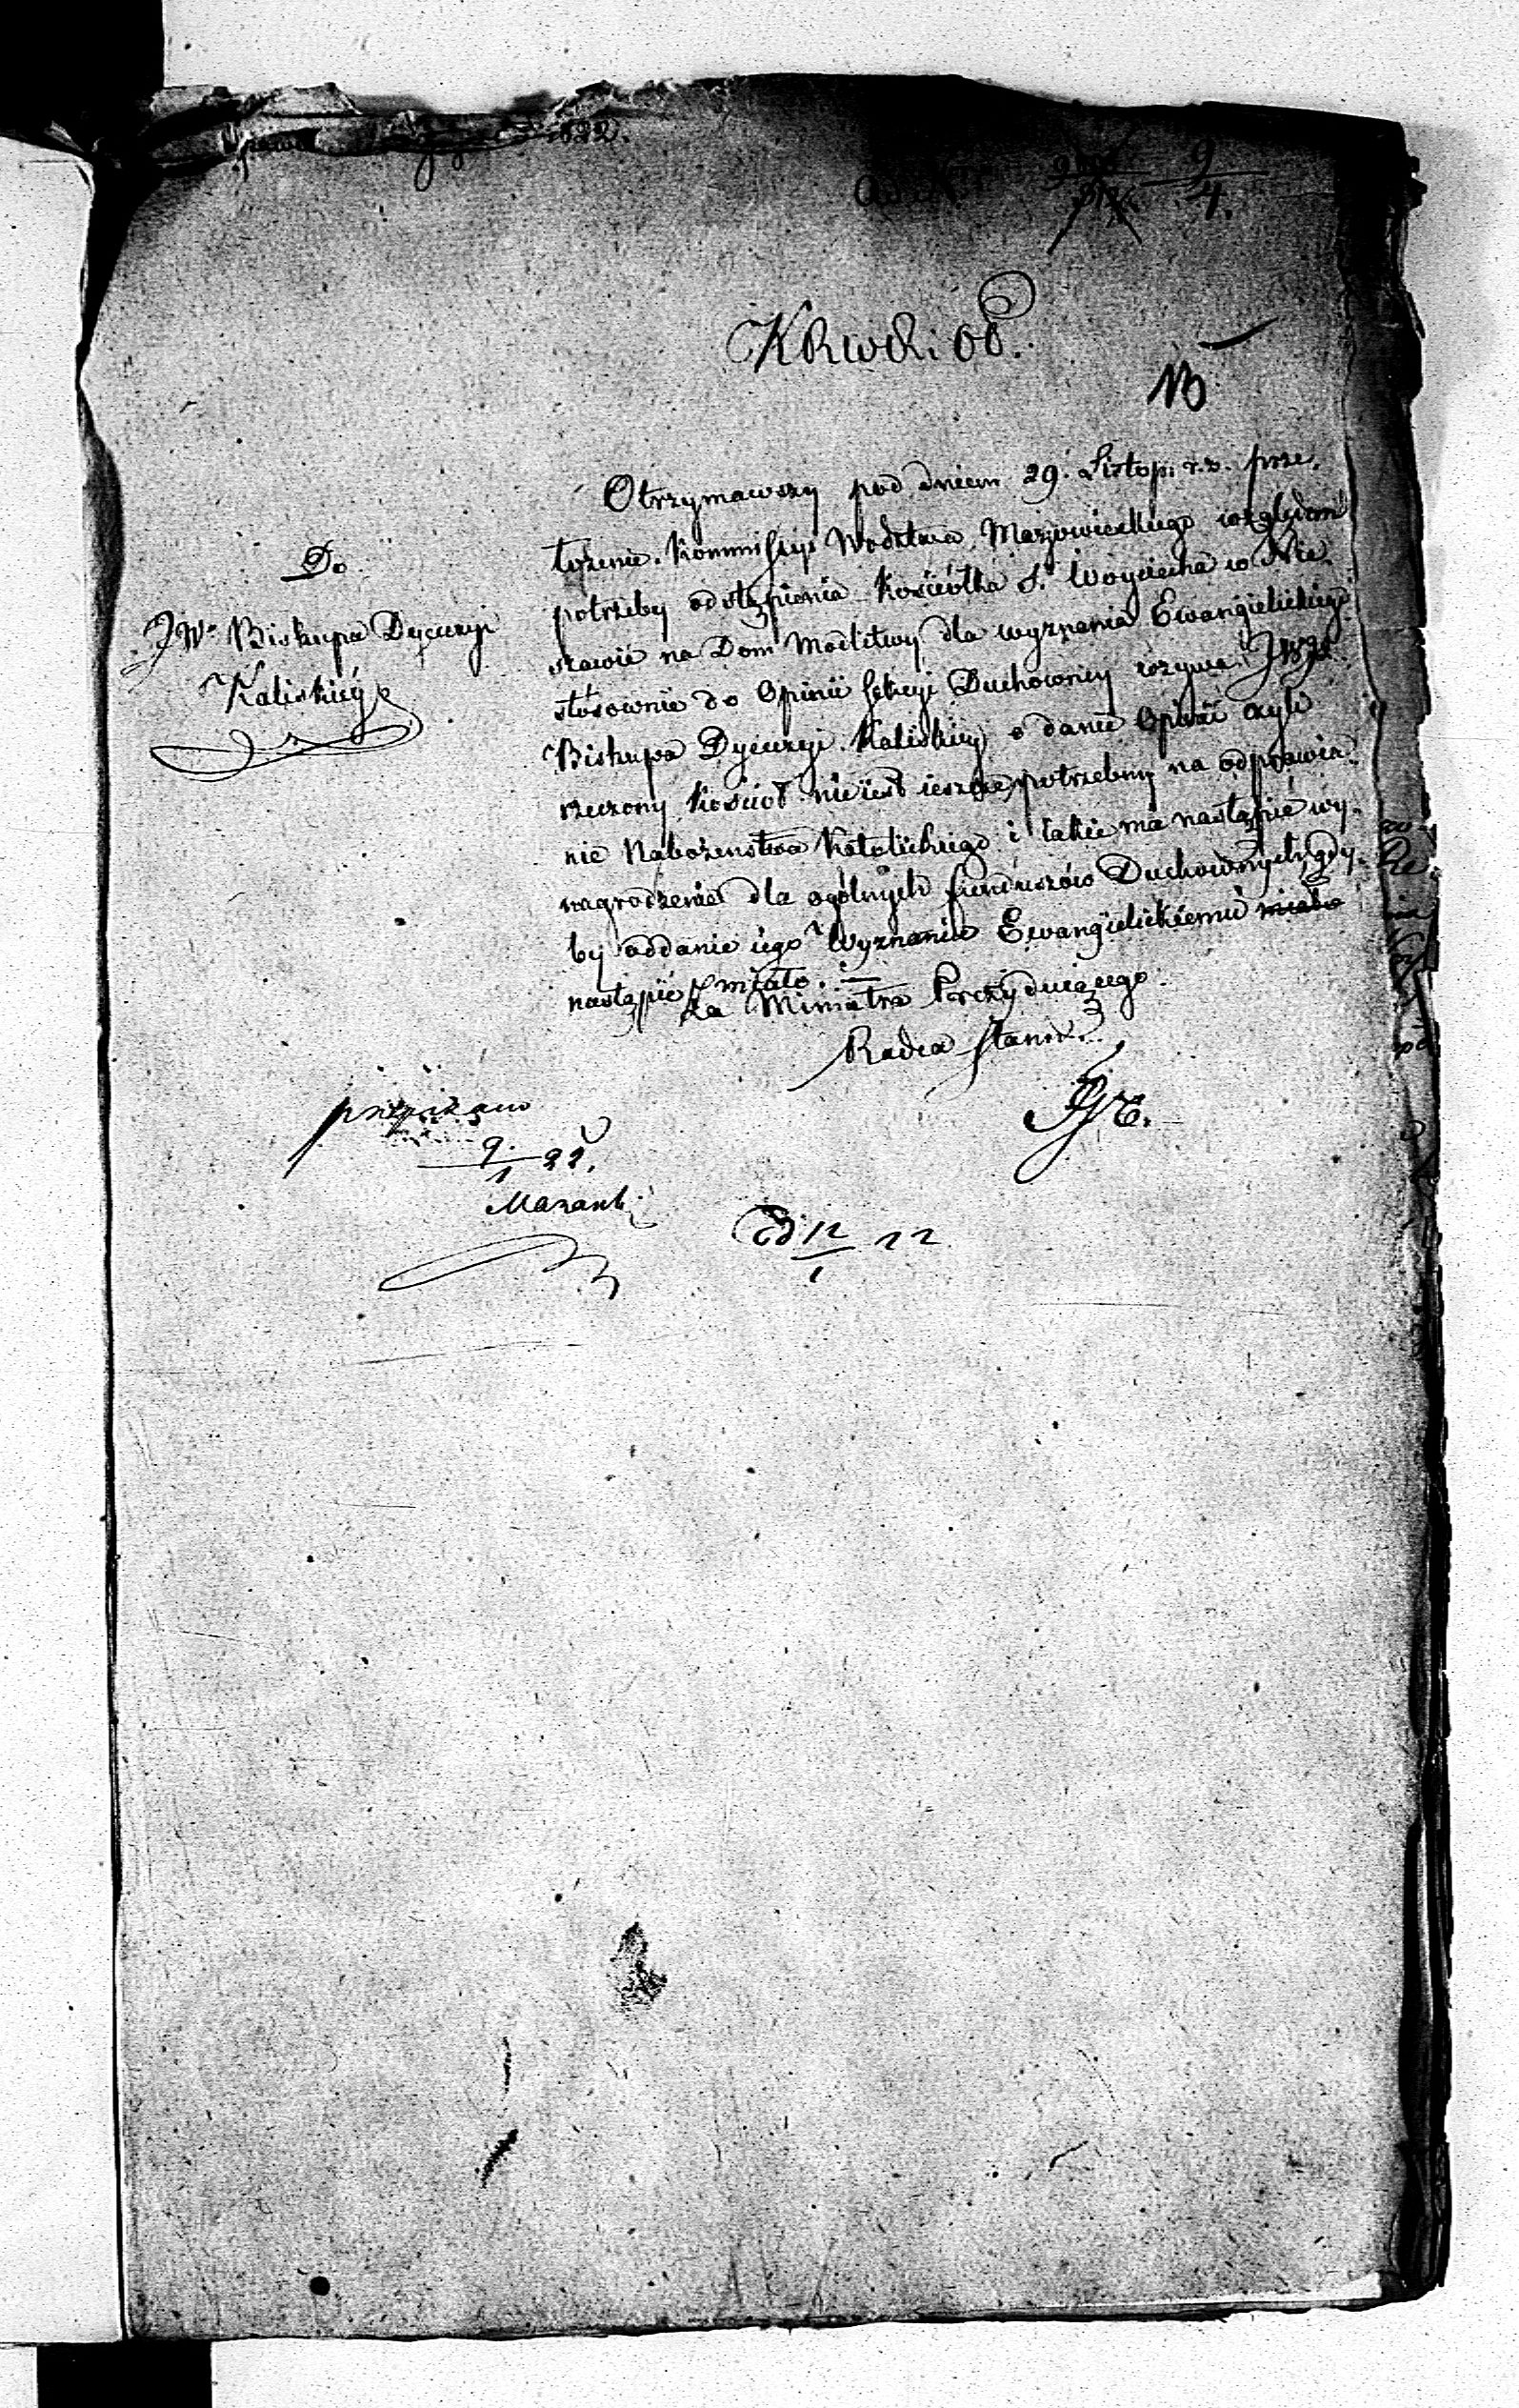 1822.
Ad N 9 9/4.
KRwRiOP.
NB
Do
JW. Biskupa Dyecezyi
Kaliskiéy
Otrzymawszy pod dniem 29. Listop. r.z. prze,
łożenie Kommissyi Wodztwa Mazowieckiego względem
potrzeby odstąpienia Kościołka S. Woyciecha w Nie,
szawie na Dom Modlitwy dla wyznania Ewangielickiego
stosownie do Opinii Sekcyi Duchowney wzywa JW.
Biskupa Dyecezyi Kaliskiey o danie Opinii czyli
rzeczony Kościoł nieiest ieszcze potrzebny na odprawia
nie Nabożeństwa Katolickiego i iakie ma nastąpić wy,
nagrodzenie dla ogólnych funduszów Duchownych, gdy,
by oddanie iego Wyznaniu Ewangielickiemu miało
nastąpić miało.
Za Ministra Prezyduiącego
Radca Stanu.
przepisano
9/1 22.
Mazank
Ed 12/1 22